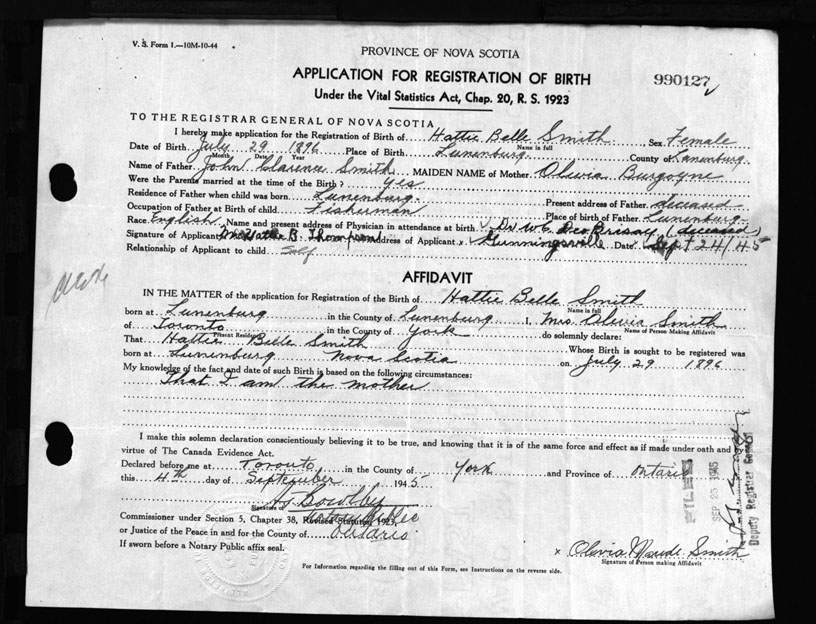 V. S. Form 1.—10M-10-44
PROVINCE OF NOVA SCOTIA
APPLICATION FOR REGISTRATION OF BIRTH
990127
Under the Vital Statistics Act, Chap. 20, R. S. 1923
TO THE REGISTRAR GENERAL OF NOVA SCOTIA
I hereby make application for the Registration of Birth of Hattie Belle Smith Sex Female
Name in full
Date of Birth July 29 1896 Place of Birth Lunenburg County of Lunenburg
Month Date Year
Name of Father John Clarence Smith MAIDEN NAME of Mother Olivia Burgoyne
Were the Parents married at the time of the Birth? Yes
Residence of Father when child was born Lunenburg Present address of Father deceased
Occupation of Father at Birth of child Fisherman Place of birth of Father Lunenburg
Race English Name and present address of Physician in attendance at birth Dr W C (deceased)
Signature of Applicant Mrs Hattie B. Thompson address of Applicant x Gunningsville Date Sept 24/45
Relationship of Applicant to child Self
AFFIDAVIT
IN THE MATTER of the application for Registration of the Birth of Hattie Belle Smith
Name in full
born at Lunenburg in the County of Lunenburg I, Mrs Olivia Smith
Name of Person Making Affidavit
of Toronto in the County of York do solemnly declare:
Present Residence
That Hattie Belle Smith Whose Birth is sought to be registered was
born at Lunenburg Nova Scotia on July 29 1896
My knowledge of the fact and date of such Birth is based on the following circumstances:
That I am the mother
I make this solemn declaration conscientiously believing it to be true, and knowing that it is of the same force and effect as if made under oath and by
virtue of The Canada Evidence Act.
Declared before me at Toronto in the County of York and Province of Ontario
this 4th day of September 1945
Signature of
Commissioner under Section 5, Chapter 38, Revised Statutes, 1923, Notary Public
or Justice of the Peace in and for the County of Ontario
If sworn before a Notary Public affix seal.
x Olivia Maude Smith
Signature of Person making Affidavit
For Information regarding the filling out of this Form, see Instructions on the reverse side.
FILED
SEP 25 1945
Deputy Registrar General